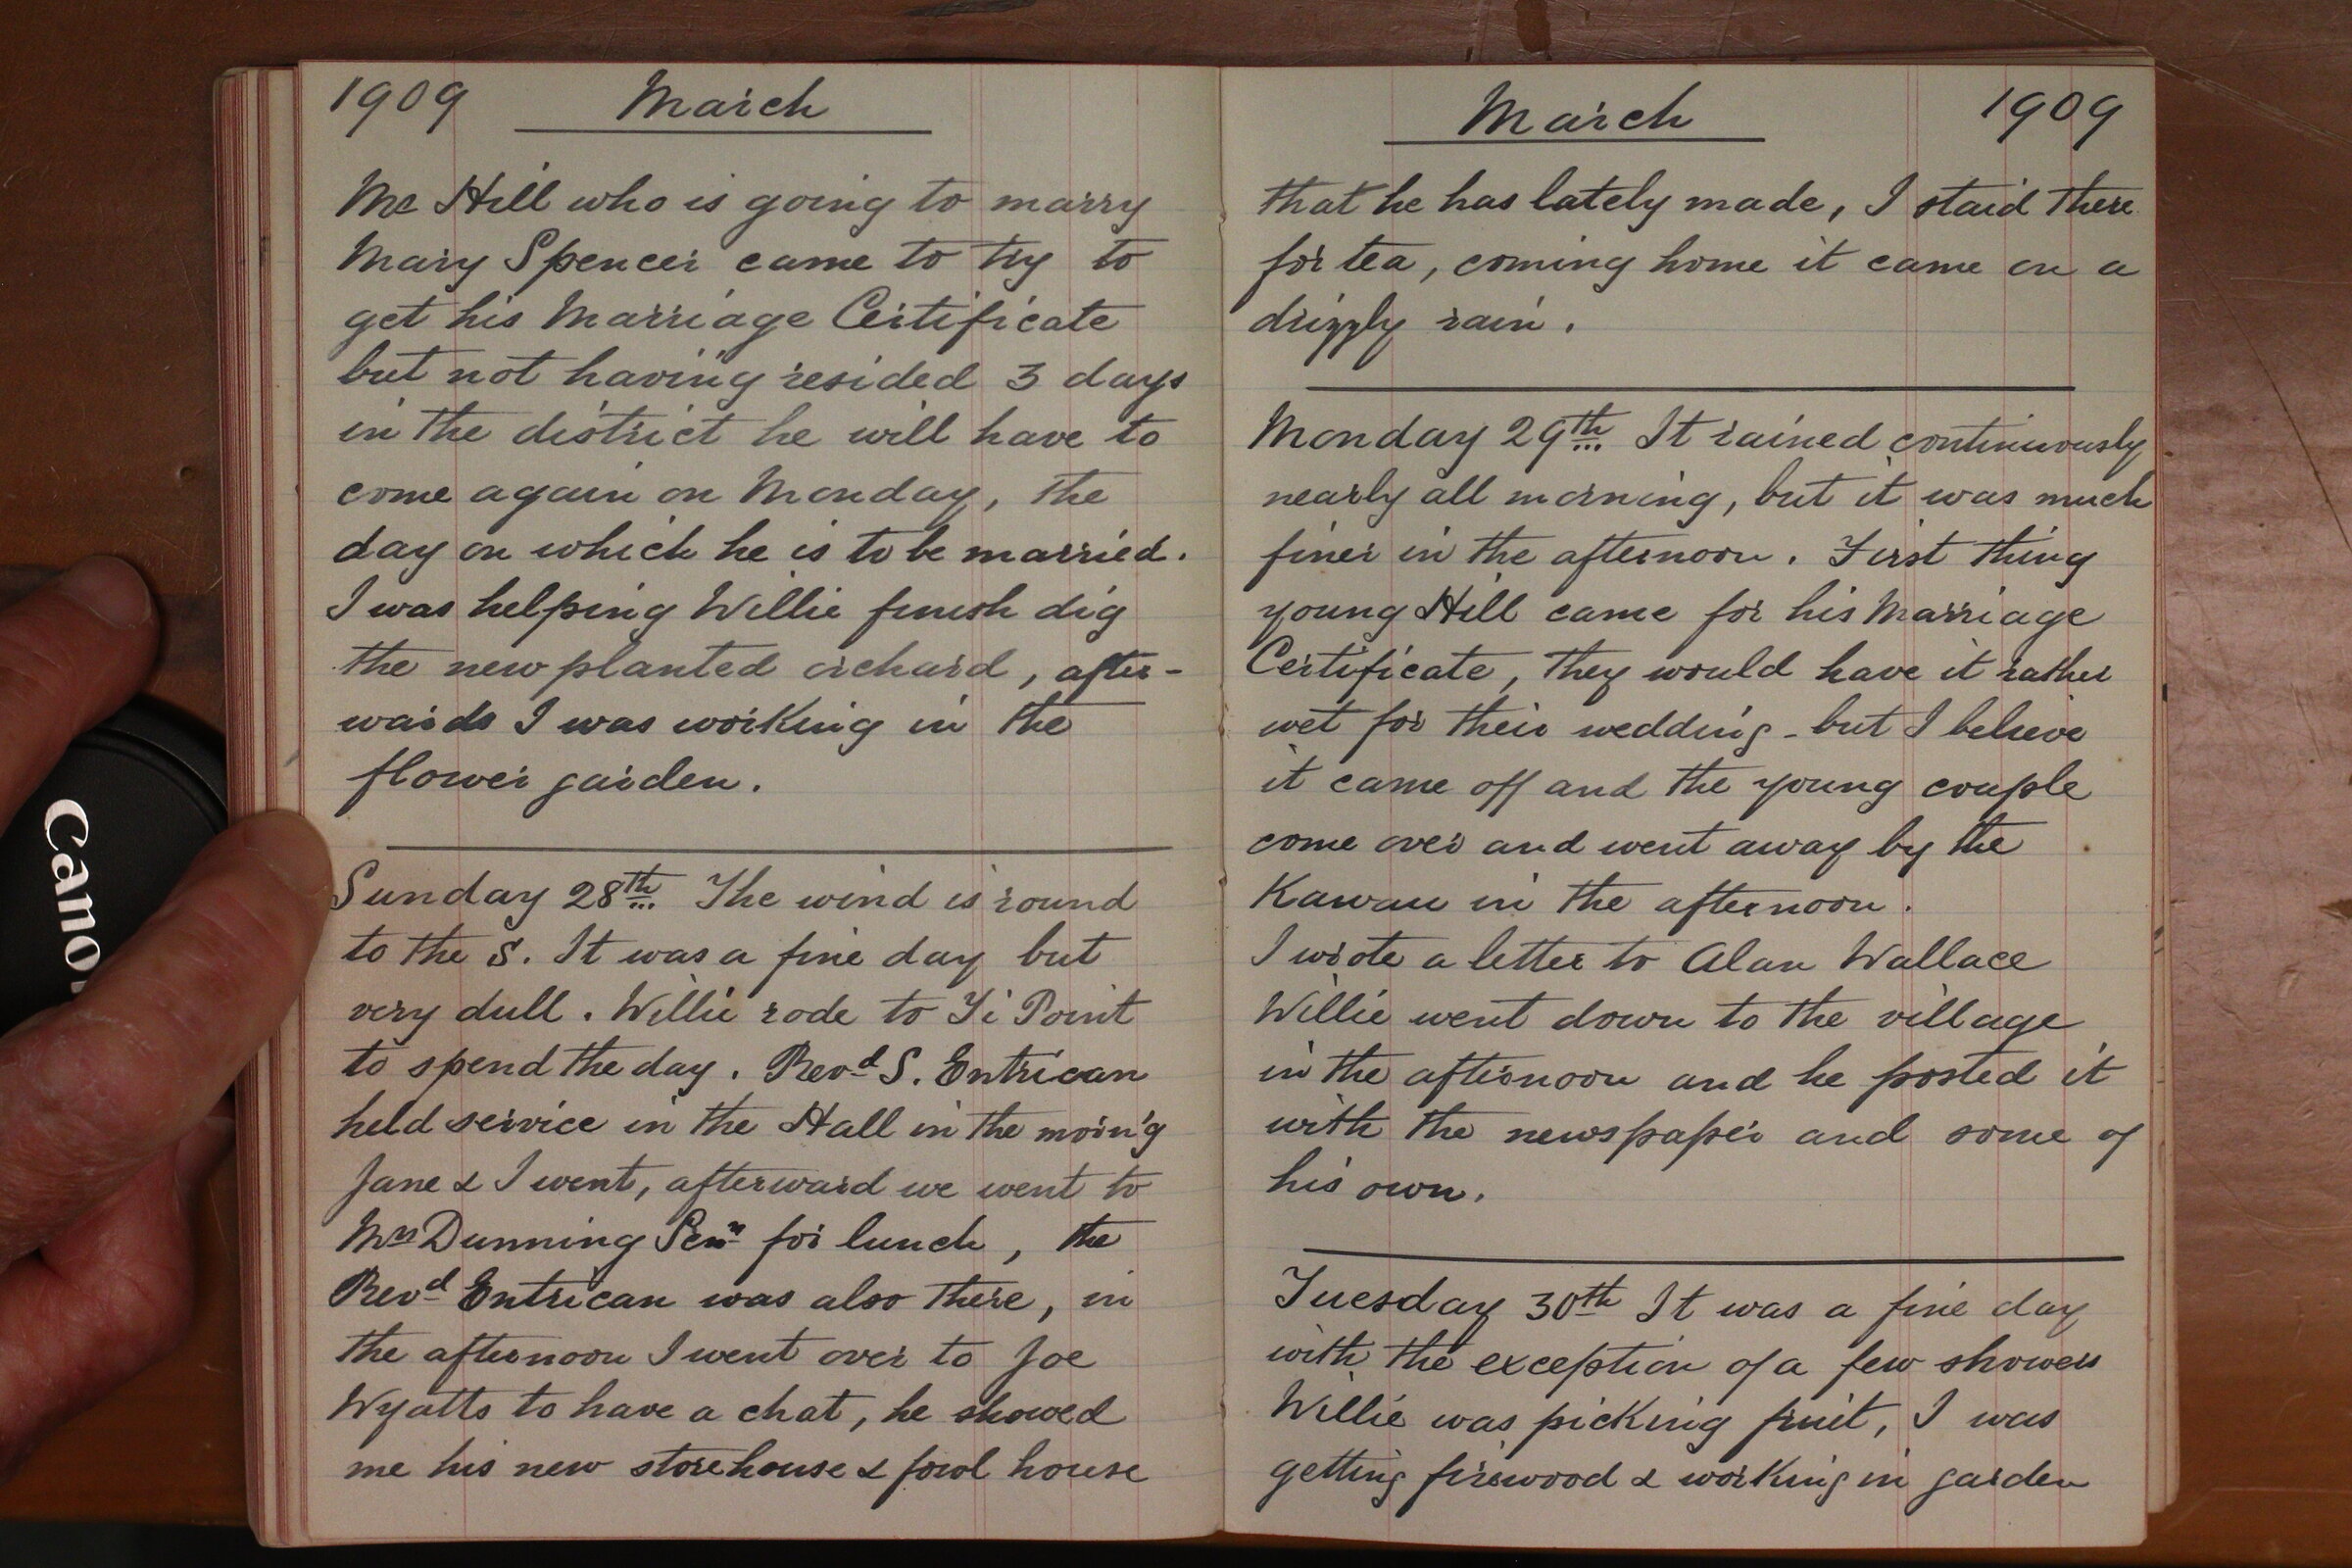 1909 March
Mr Hill who is going to marry
Mary Spencer came to try to
get his Marriage Certificate
but not having resided 3 days
in the district he will have to
come again on Monday, the
day on which he is to be married.
I was helping Willie finish dig
the new planted orchard, after-
wards I was working in the
flower garden.
Sunday 28th The wind is round
to the S. It was a fine day but
very dull. Willie rode to Ti Point
to spend the day. Revd S. Entrican
held service in the Hall in the morn'g
Jane & I went, afterward we went to
Mrs Dunning Senr for lunch, the
Revd Entrican was also there, in
the afternoon I went over to Joe
Wyatts to have a chat, he showed
me his new storehouse & fowl house
March 1909
that he has lately made, I staid there
for tea, coming home it came on a
drizzly rain.
Monday 29th It rained continuously
nearly all morning, but it was much
finer in the afternoon. First thing
young Hill came for his Marriage
Certificate, they would have it rather
wet for their wedding - but I believe
it came off and the young couple
come over and went away by the
Kawau in the afternoon.
I wrote a letter to Alan Wallace
Willie went down to the village
in the afternoon and he posted it
with the newspaper and some of
his own.
Tuesday 30th It was a fine day
with the exception of a few showers
Willie was picking fruit, I was
getting firewood & working in garden
Canon